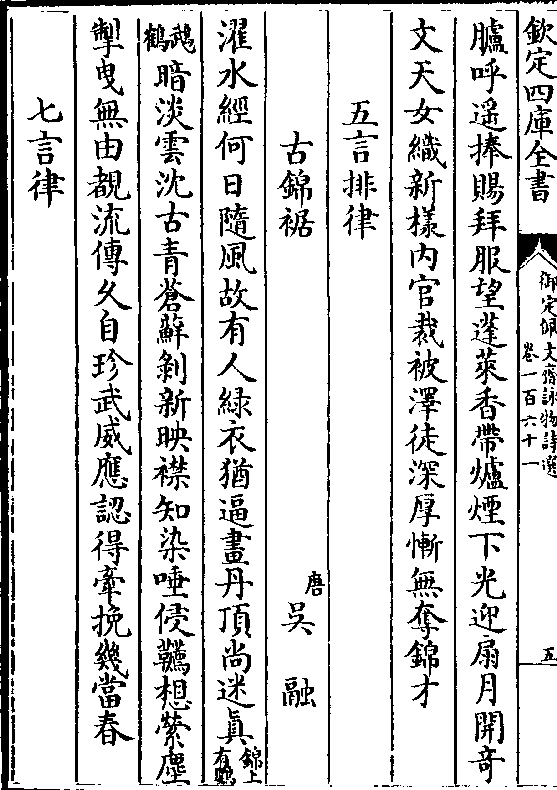 欽定四庫全書
御定佩文齋詠物詩選
卷一百六十一
五
臚呼遥捧賜拜服望蓬萊香帶爐煙下光迎扇月開奇
文天女織新樣内官裁被澤徒深厚慚無奪錦才
五言排律
古錦裾
唐吳融
濯水經何日隨風故有人緑衣猶逼畫丹頂尚迷真錦上有鸚
鵡鶴暗淡雲沈古青蒼蘚剝新映襟知染唾侵韈想縈塵
掣曳無由覩流傳久自珍武威應認得牽挽幾當春
七言律